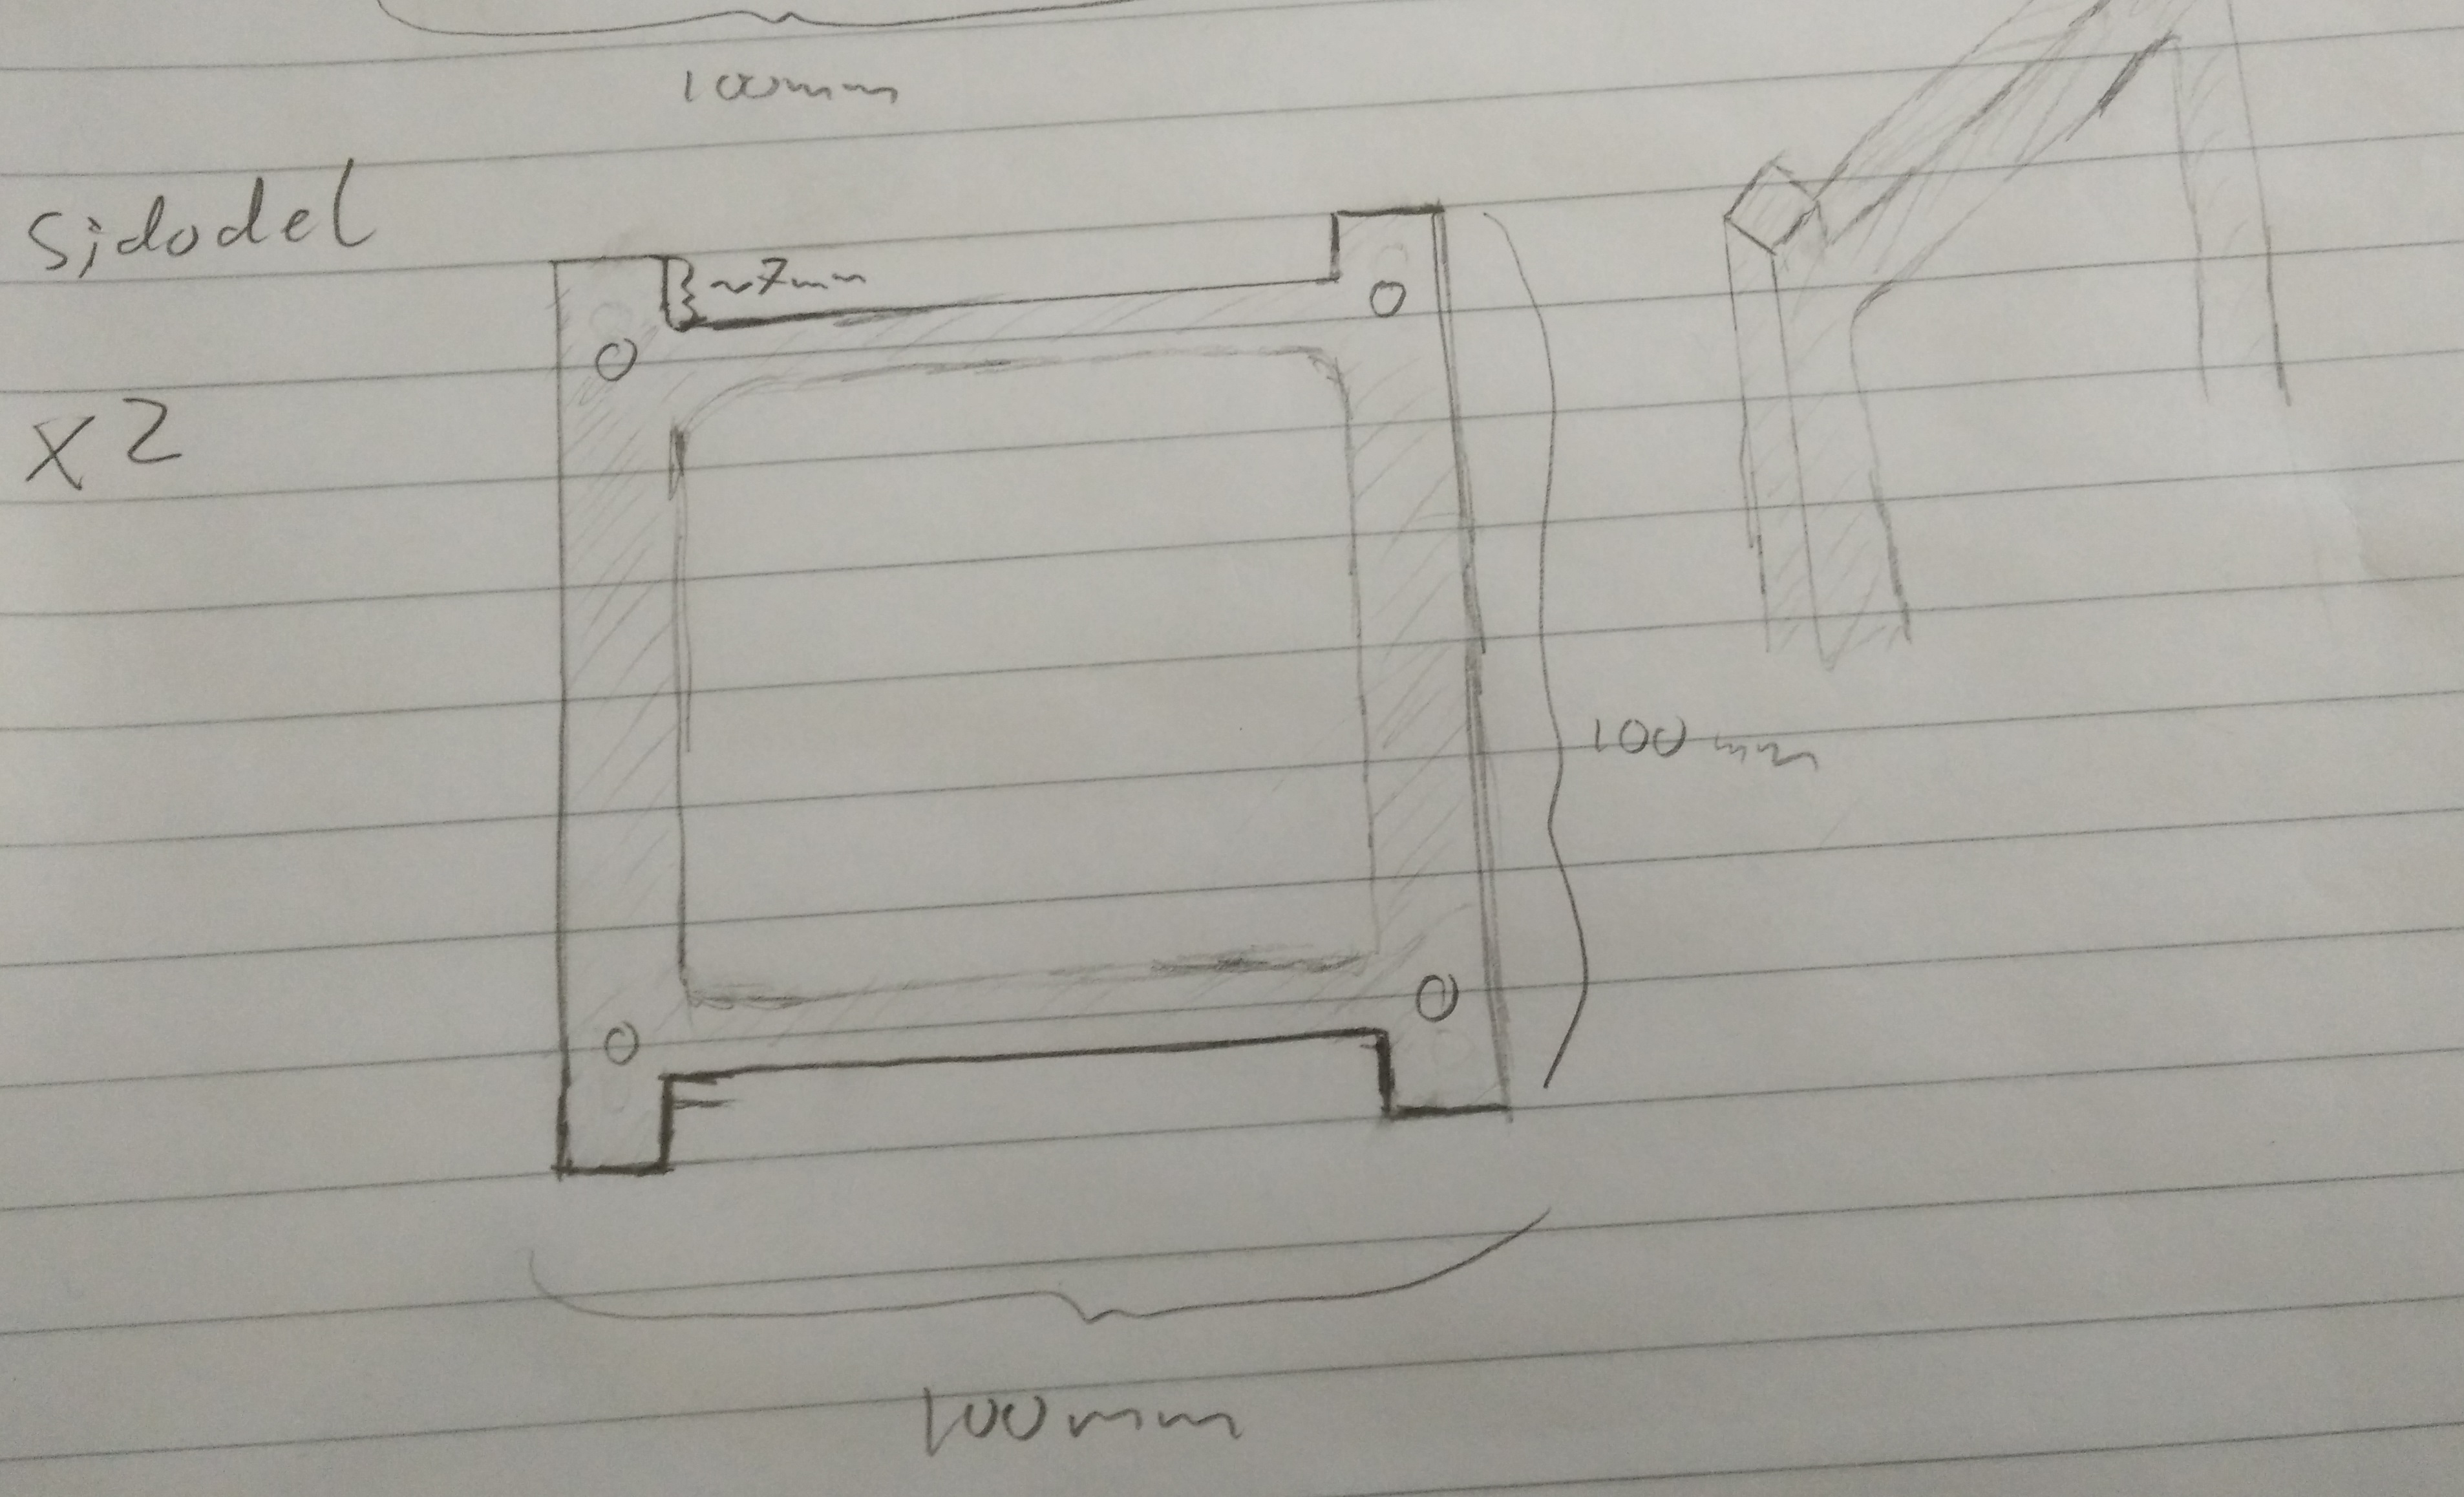 100mm
Sidodel
~7mm
X2
100mm
100mm